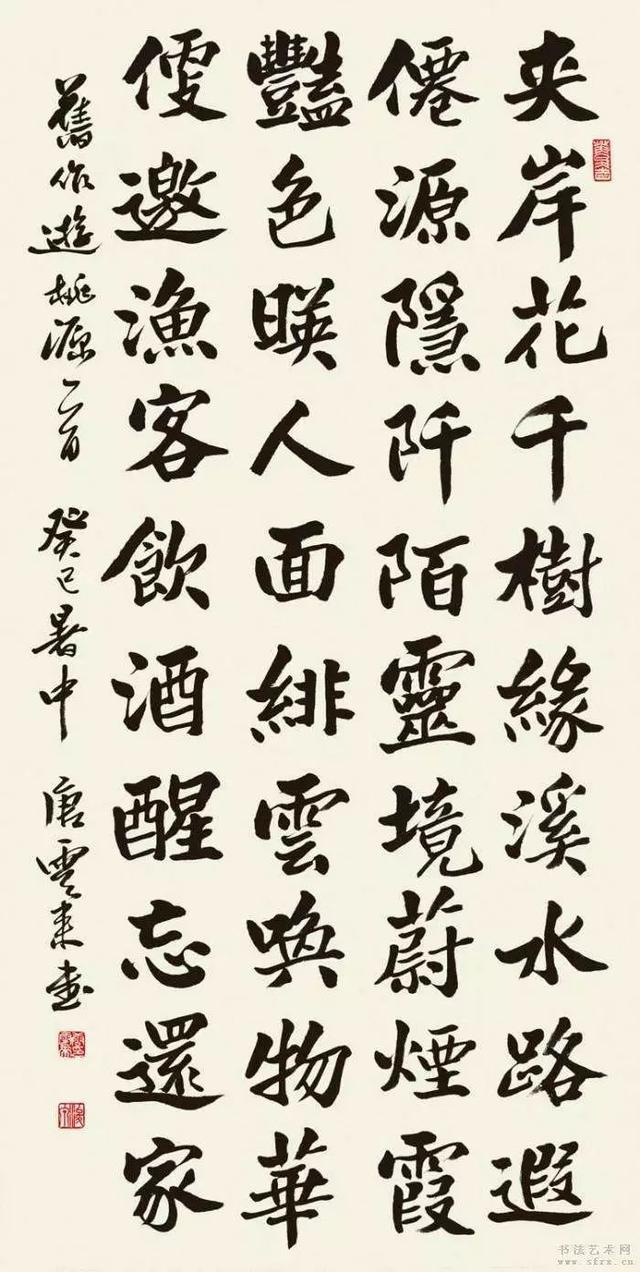 夹岸花千樹緣溪水路遐
僊源隱阡陌靈境蔚煙霞
豔色暎人面緋雲喚物華
便邀漁客飲酒醒忘還家
舊作遊桃源一首 癸巳暑中 唐雲來書
书法艺术网
www.sfrx.cn